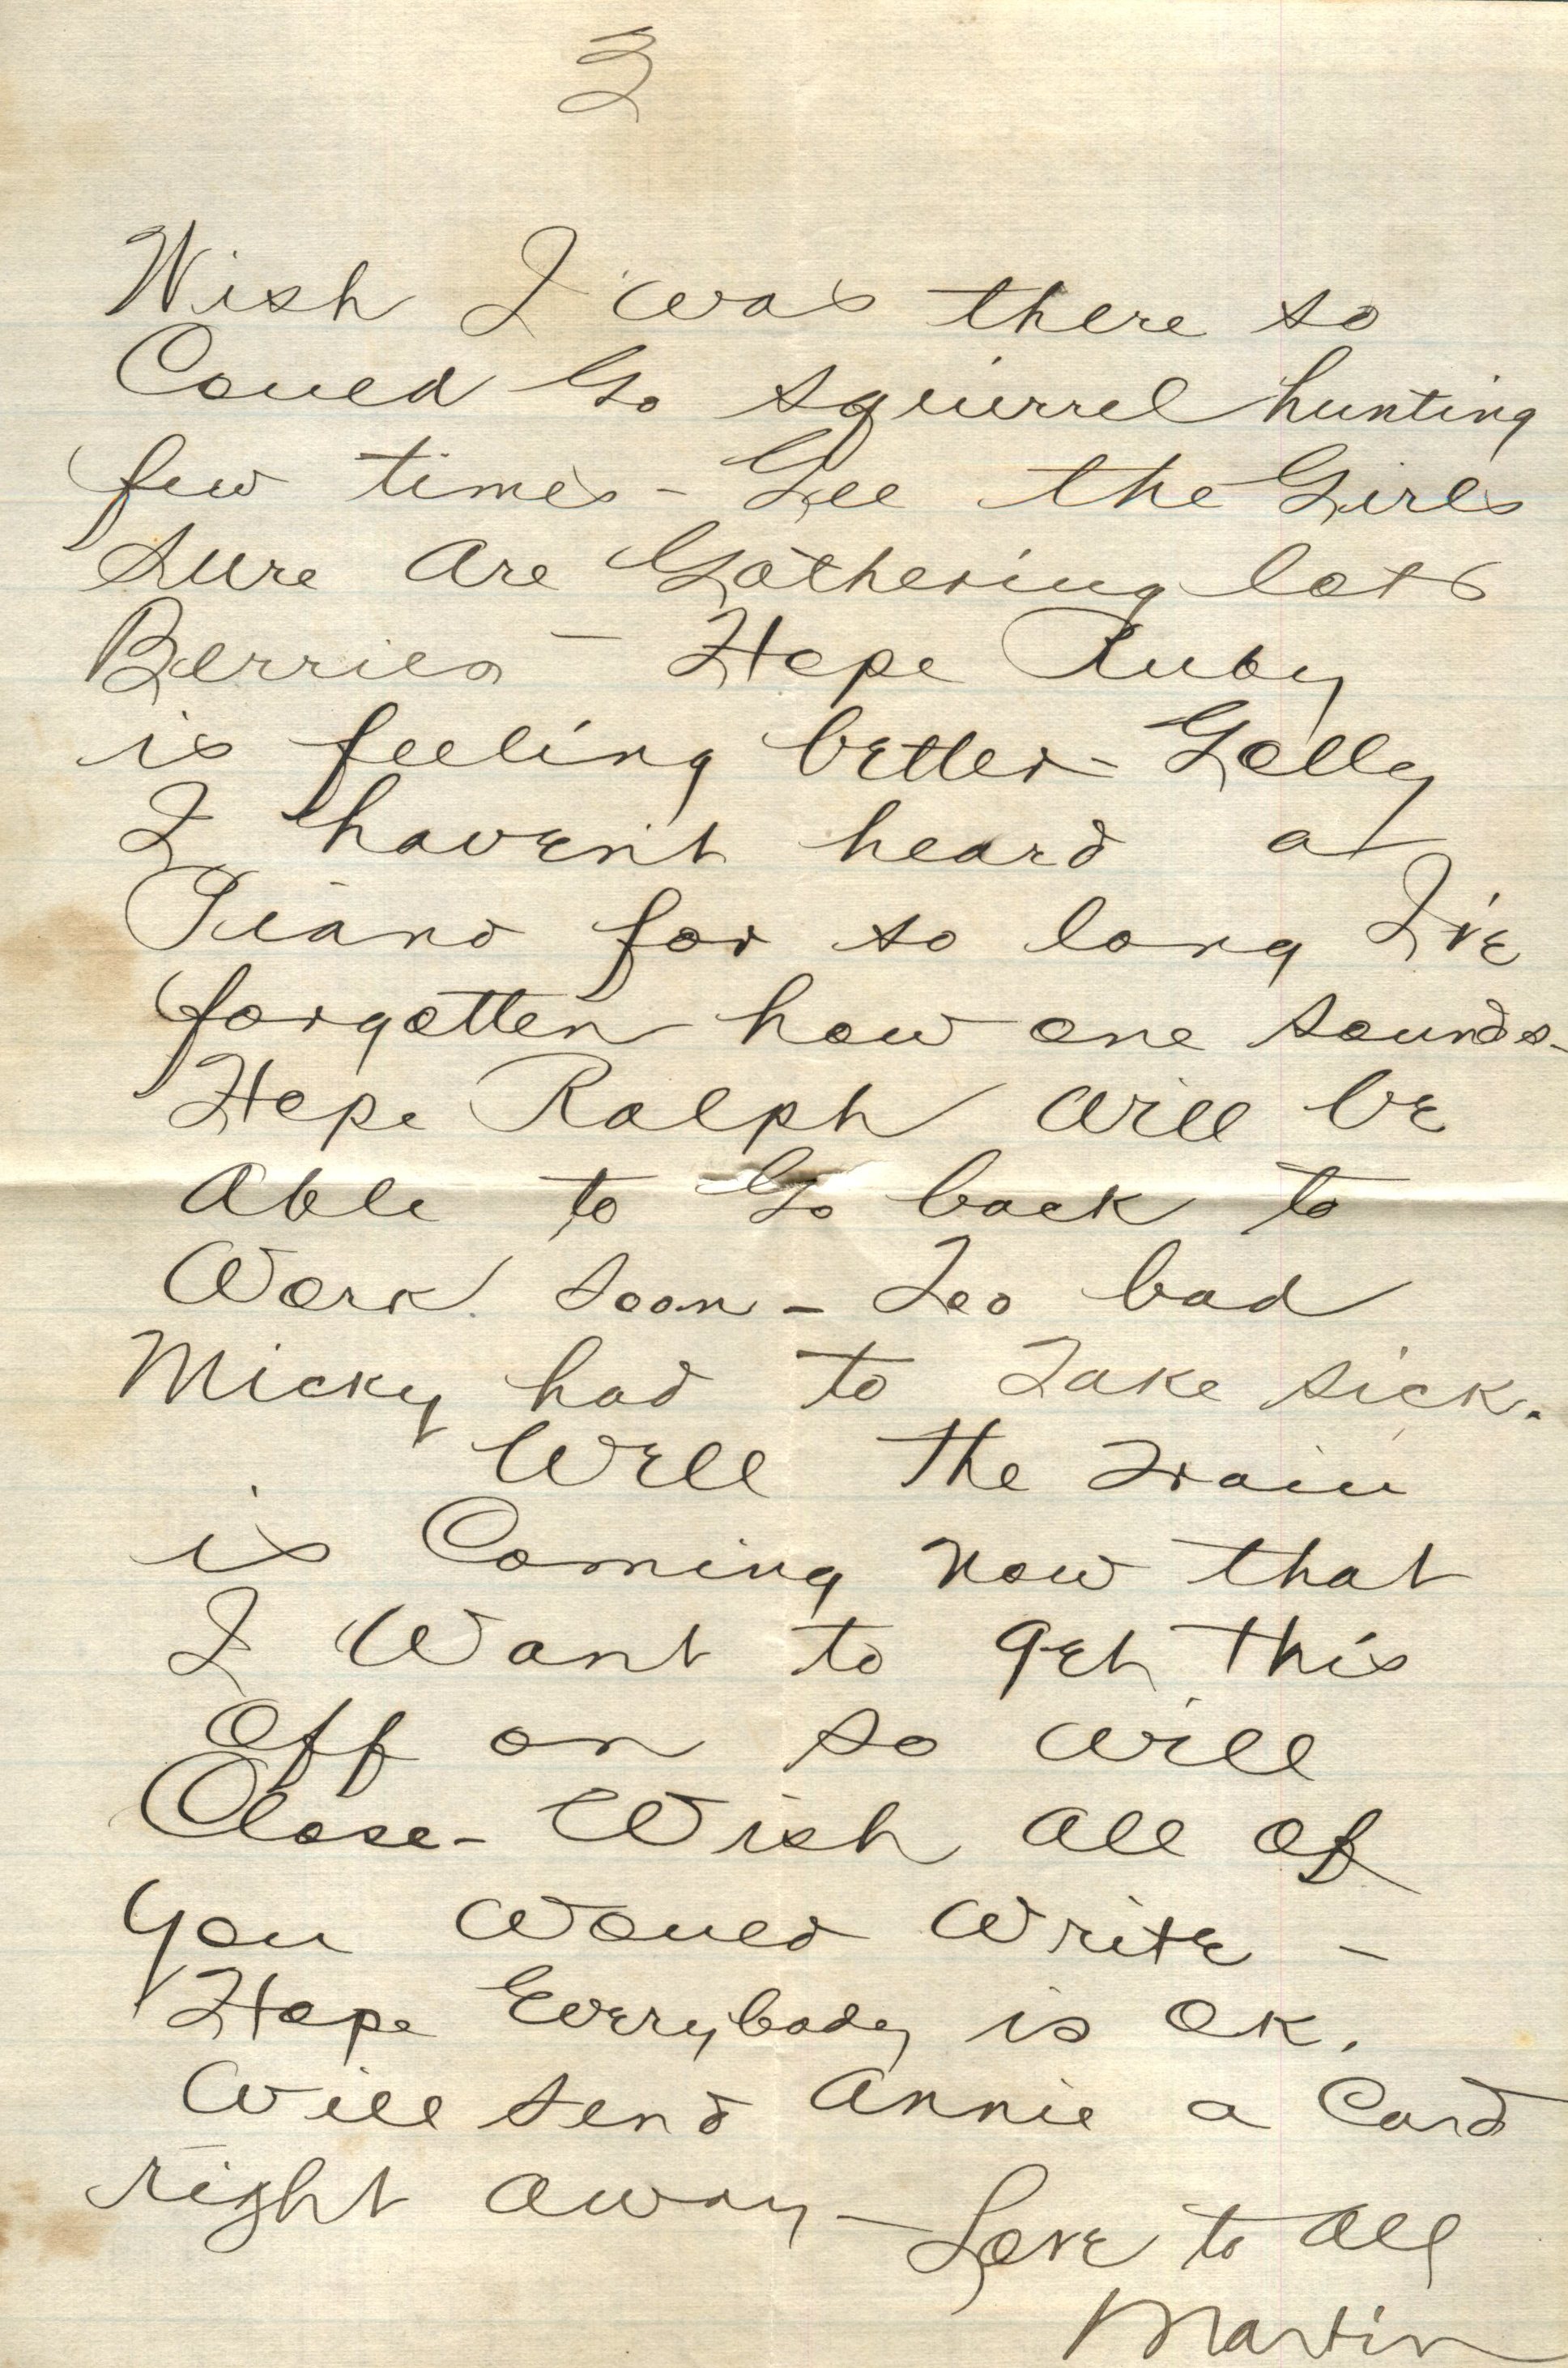 3
Wish I was there so
Could Go squirrel hunting
few times - Gee the Girls
sure are Gathering lots
Berries - Hope Ruby
is feeling better - Golly
I haven't heard a
Piano for so long I've
forgotten how one sounds -
Hope Ralph will be
able to Go back to
Work soon - Too bad
Micky had to Take sick.
Well The Train
is Coming now that
I Want to get This
Off on so will
Close - Wish all of
you would write -
Hope Everybody is OK.
Will send Annie a Card
right away - Love to all
Martin